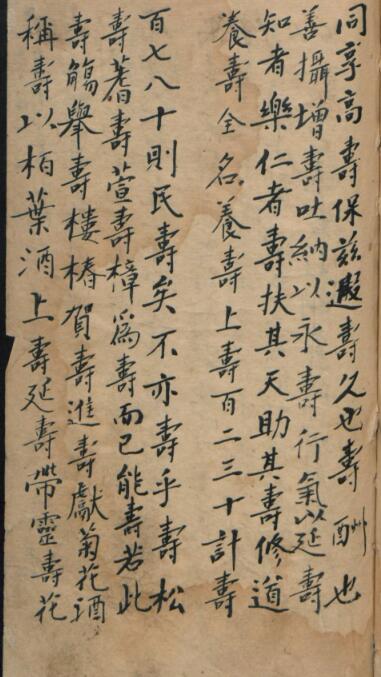 同享高壽保兹遐壽久也壽酬也
善攝增壽吐納以永壽行氣以延壽
知者樂仁者壽扶其天助其壽修道
養壽全名養壽上壽百二三十計壽
百七八十則民壽矣不亦壽乎壽松
壽蓍壽萱壽樟為壽而已能壽若此
壽觴舉壽樓椿賀壽進壽獻菊花酒
稱壽以栢葉酒上壽延壽帶靈壽花